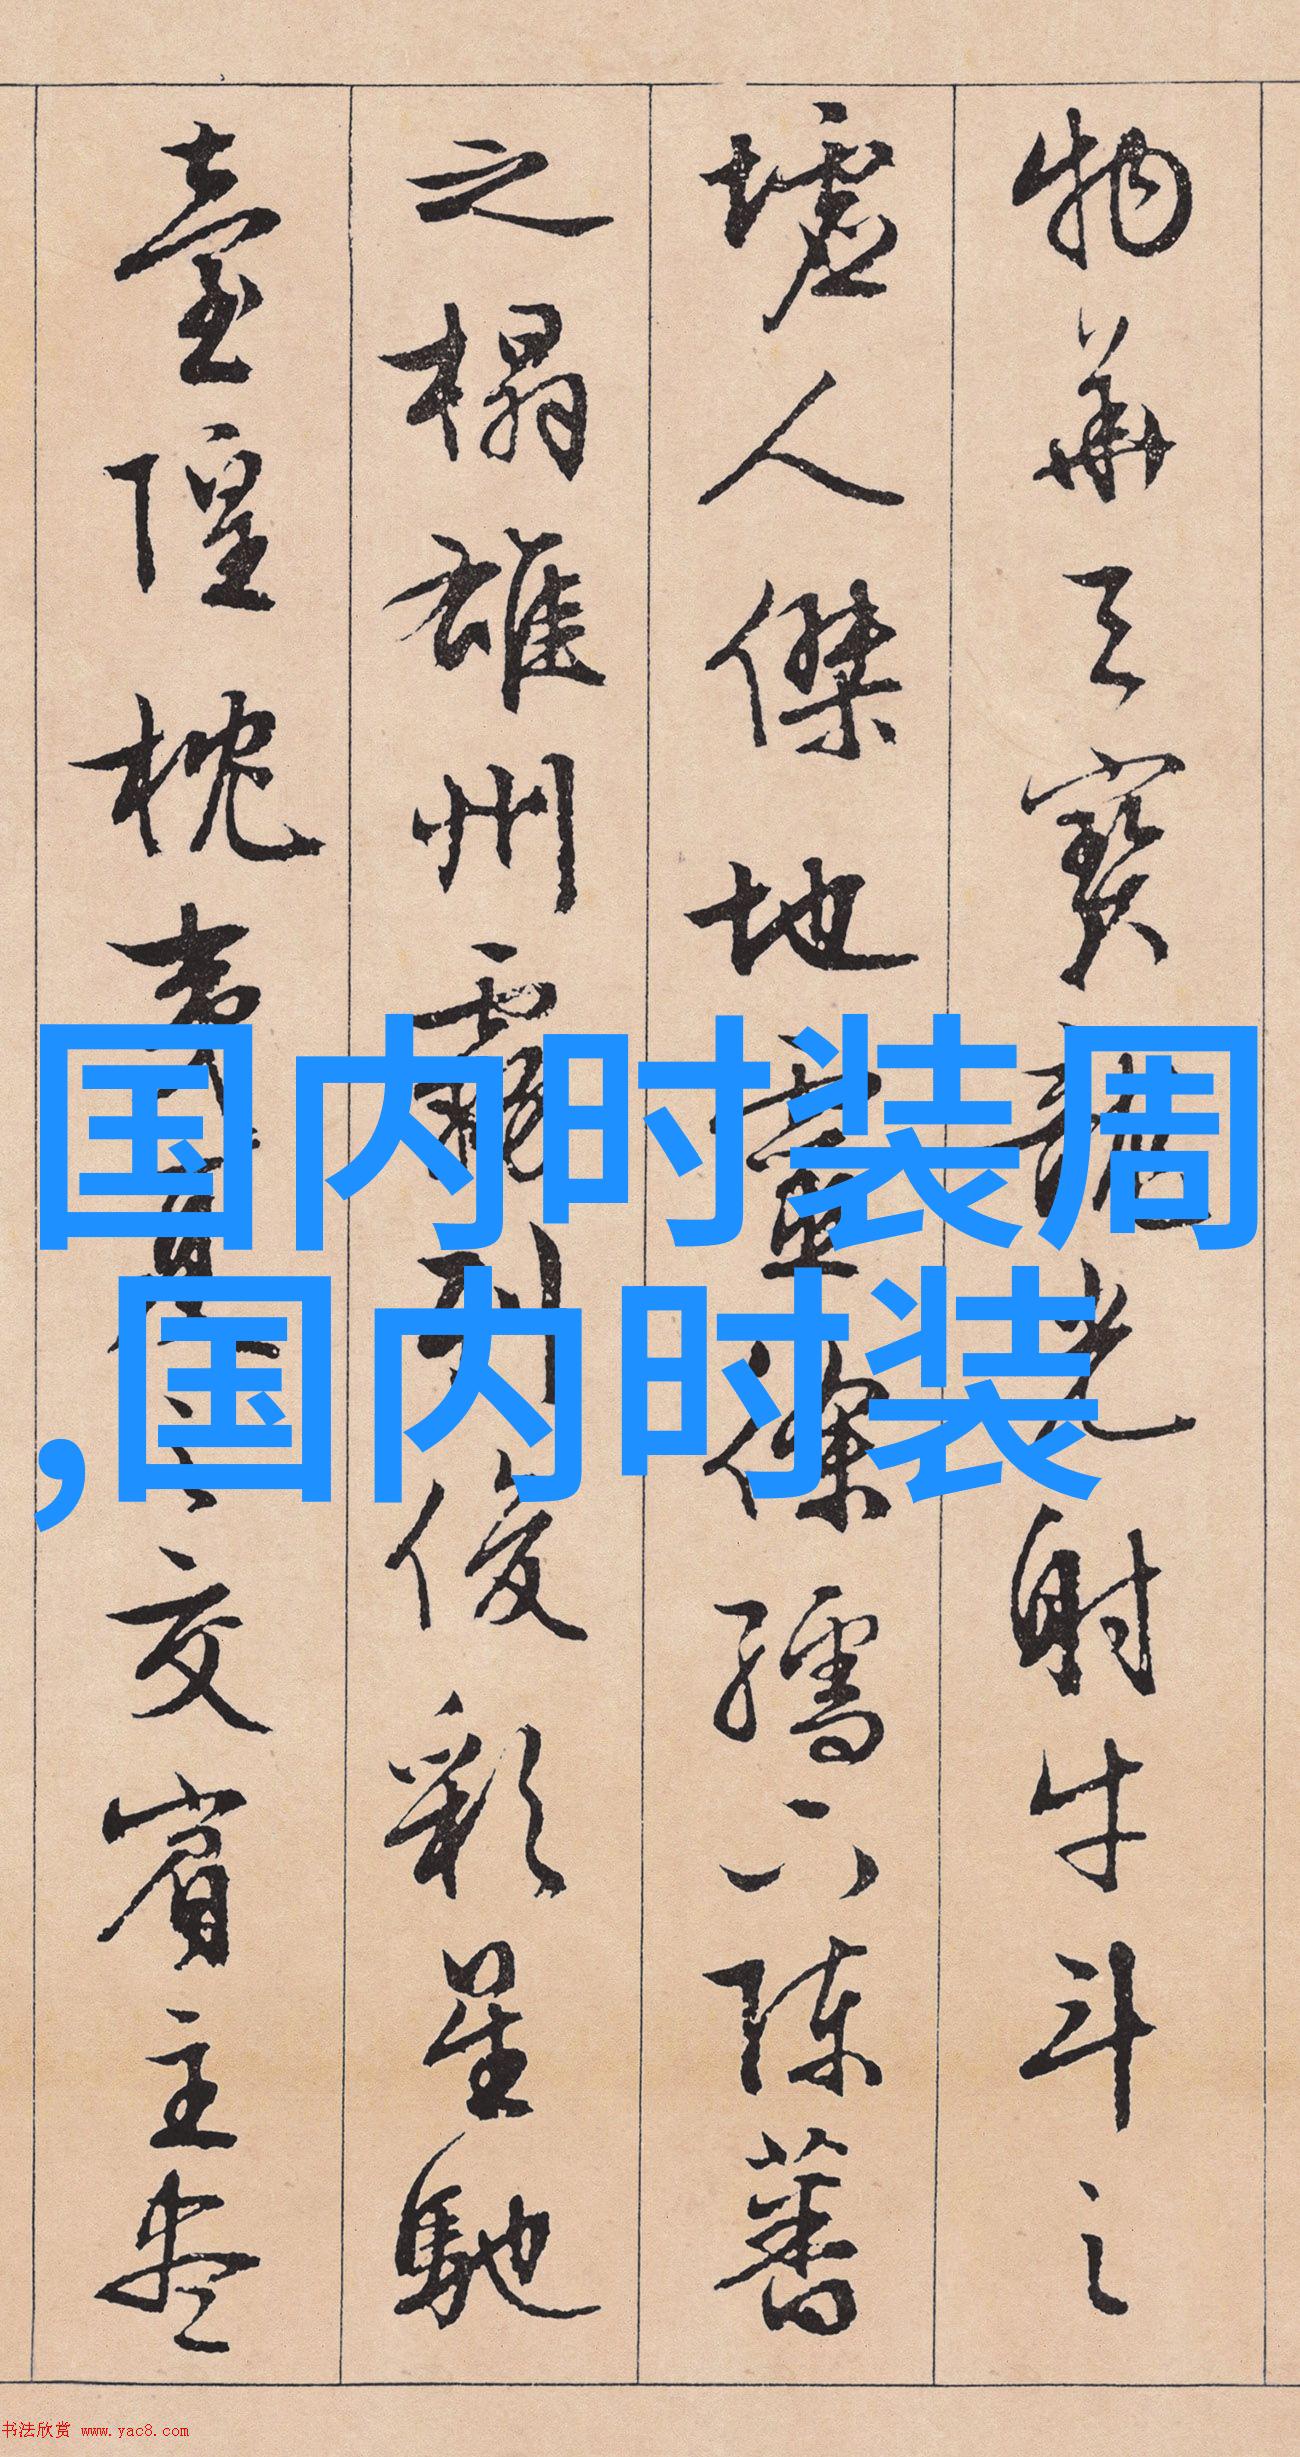 物華天寶龍光射牛斗之
墟人傑地靈徐孺下陳蕃
之榻雄州霧列俊彩星馳
臺隍枕夷夏之交賓主盡
国内时装周
,国内时装
书法欣赏 www.yac8.com